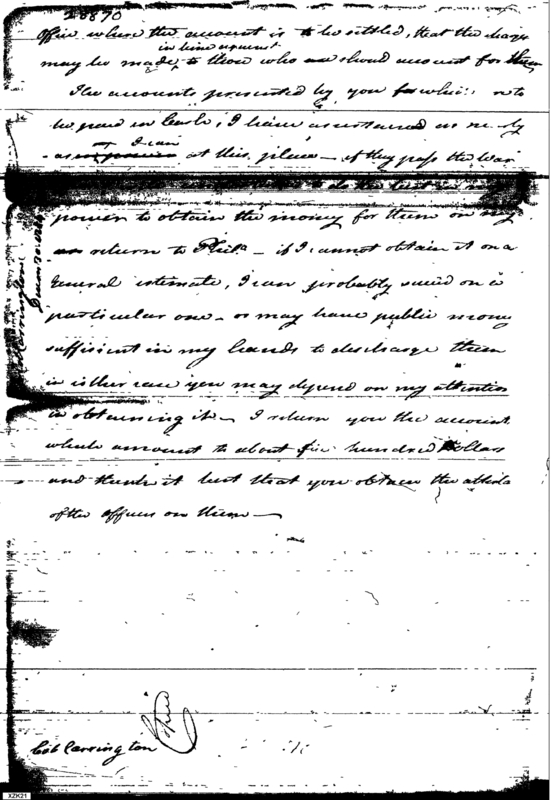 28870
Office where the account is to be settled, that the charge
in time against
may be made to those who should account for them
The accounts presented by you for which
be paid in Cash, I have as
I can
as at this place — if they pass the War
to do the best in my
power to obtain the money for them on my
return to Phila — if I cannot obtain it on a
General estimate, I can probably succeed on a
particular one — or may have public money
sufficient in my hands to discharge them
in either case you may depend on my attention
in obtaining it — I return you the account
which amount to about five hundred Dollars
and think it best that you obtain the
of the officers on them —
Col Carrington
Col Carrington
XZK21